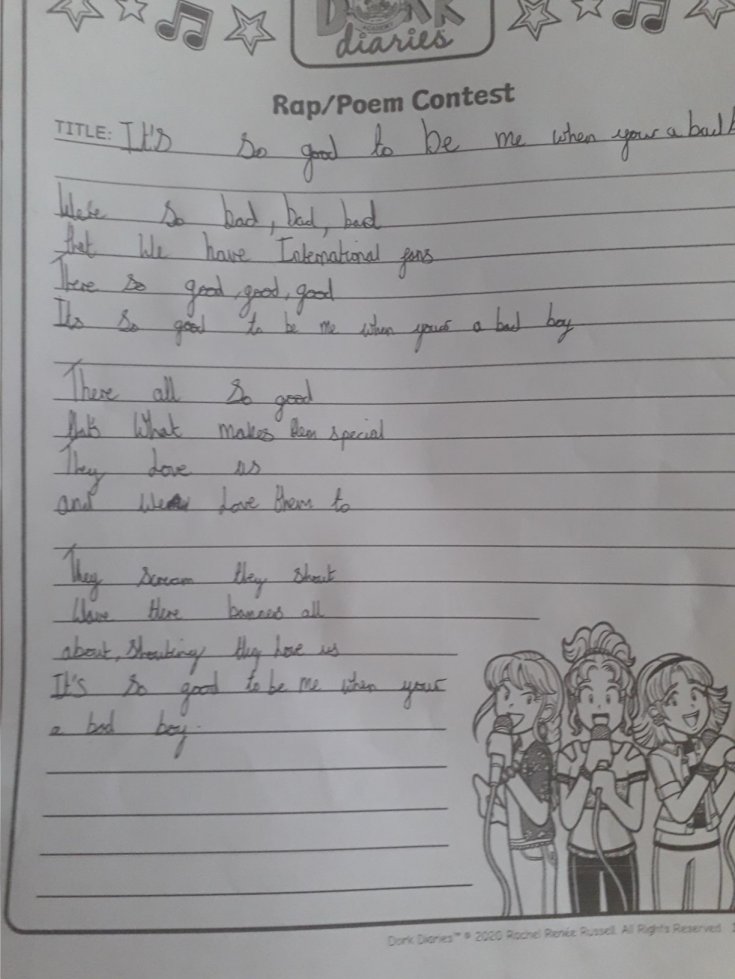 DORK
diaries
Rap/Poem Contest
TITLE: It's so good to be me when your a bad
We're so bad, bad, bad
that We have International fans
There so good, good, good
It's so good to be me when your a bad boy
There all so good
that's What makes them special
They Love us
and We Love them to
They Scream they shout
Wave there banners all
about, Shouting they Love us
It's so good to be me when your
a bad boy.
Dork Diaries™ © 2020 Rachel Renée Russell. All Rights Reserved.